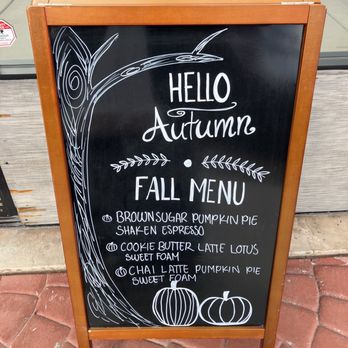 HELLO
Autumn
FALL MENU
BROWN SUGAR PUMPKIN PIE
SHAKEN ESPRESSO
COOKIE BUTTER LATTE LOTUS
SWEET FOAM
CHAI LATTE PUMPKIN PIE
SWEET FOAM